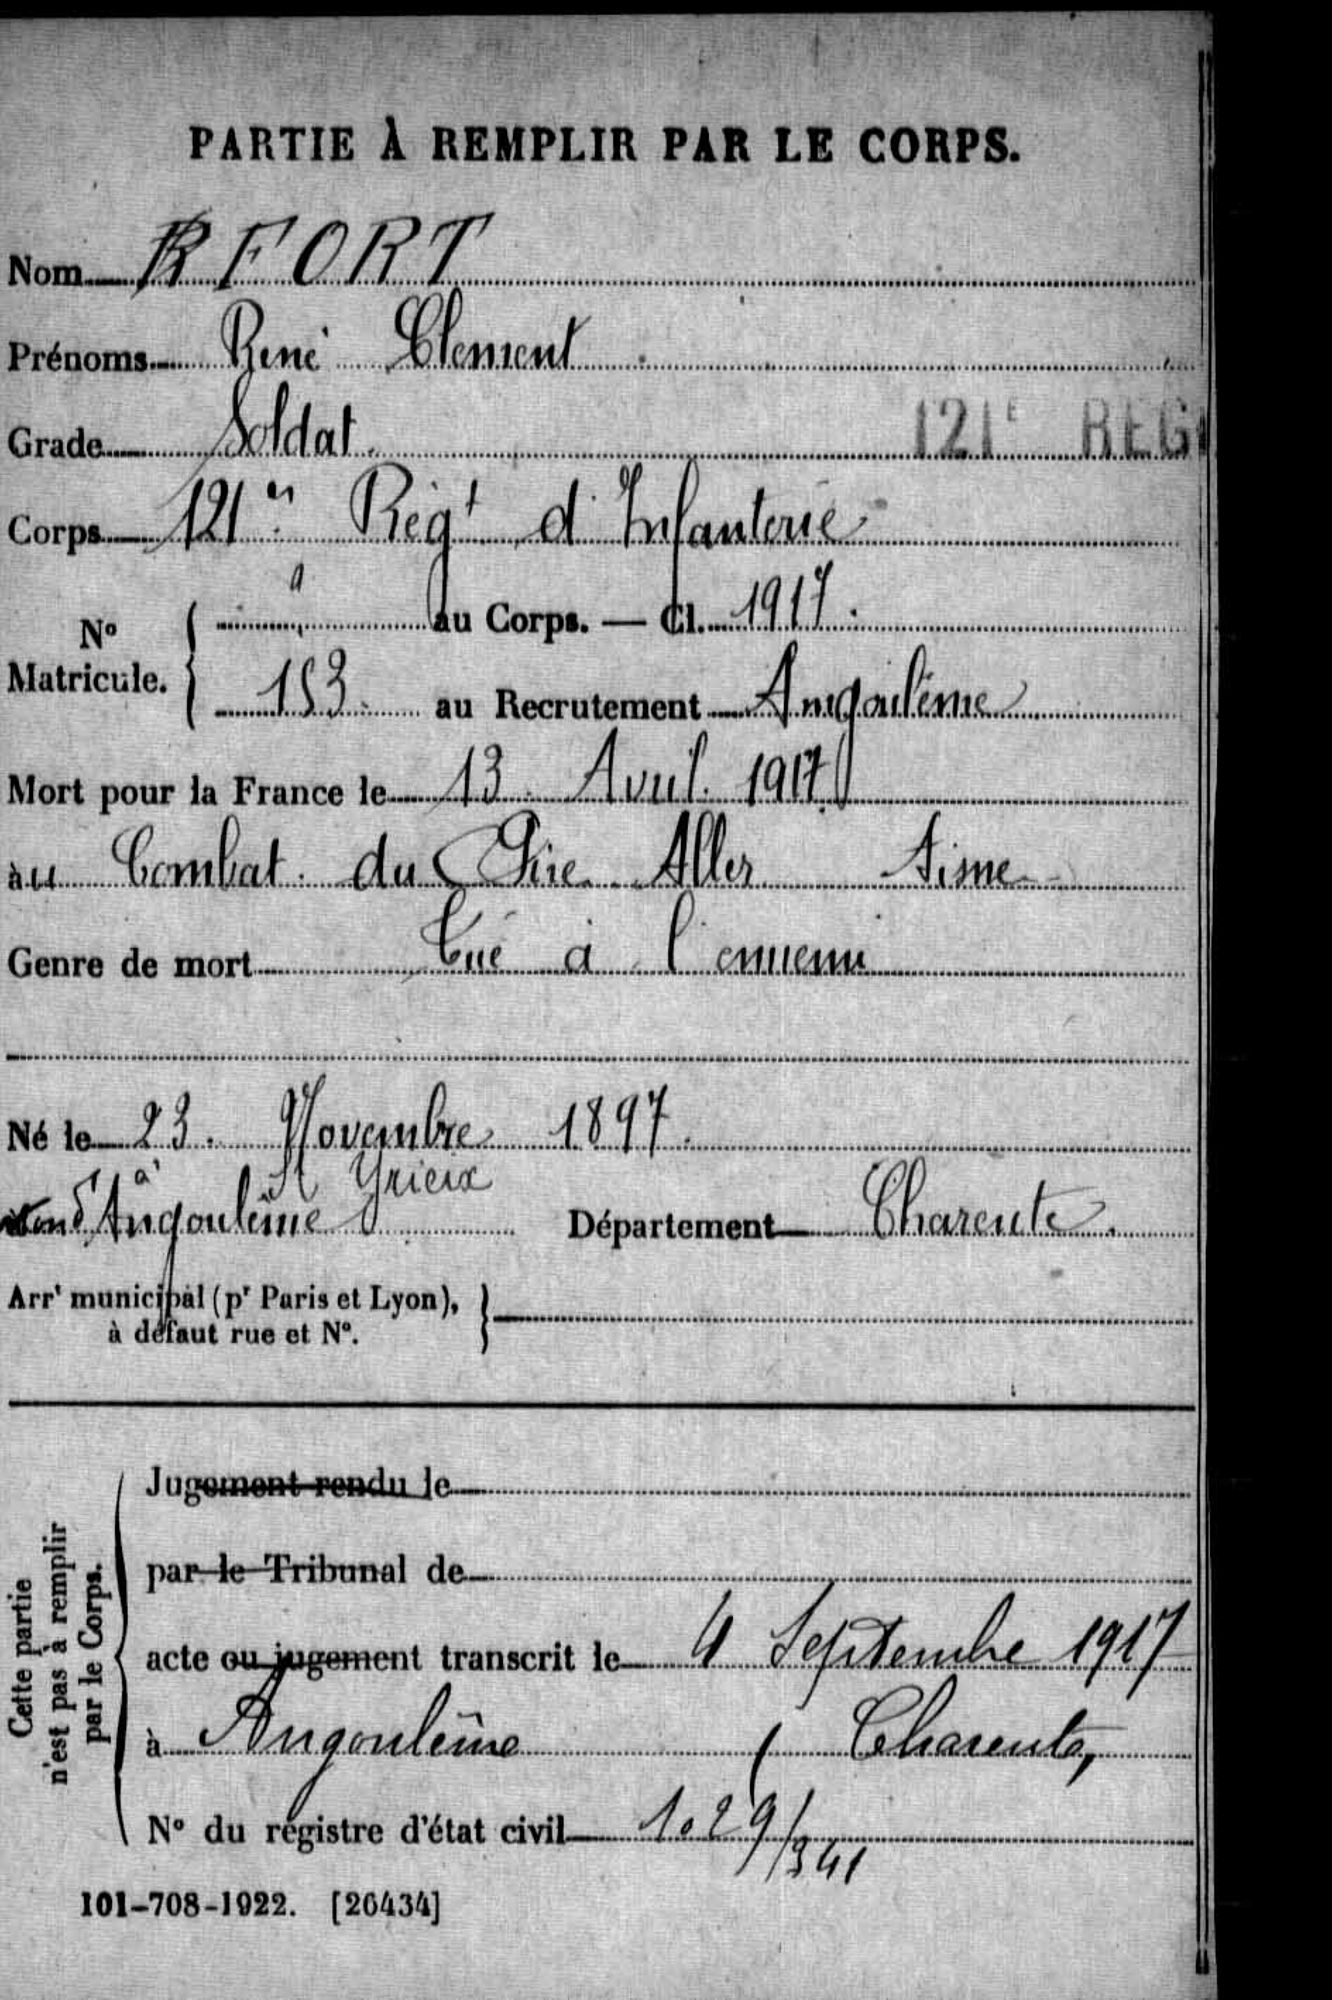 PARTIE À REMPLIR PAR LE CORPS.
Nom FORT
Prénoms René Clement
Grade Soldat.
121E REG
Corps 121e Régt d'Infanterie
No Matricule. { " au Corps. — Cl. 1917.
153 au Recrutement Angoulême
Mort pour la France le 13 Avril 1917
au Combat du Aisne
Genre de mort Tué à l'ennemi
Né le 23 Novembre 1897.
à St Yrieix
d'Angoulême Département Charente.
Arrt municipal (pr Paris et Lyon), }
à défaut rue et No.
Cette partie
n'est pas à remplir
par le Corps.
Jugement rendu le
par le Tribunal de
acte ou jugement transcrit le 4 Septembre 1917
à Angoulême ( Charente,
No du registre d'état civil 1029/341
101-708-1922. [26434]